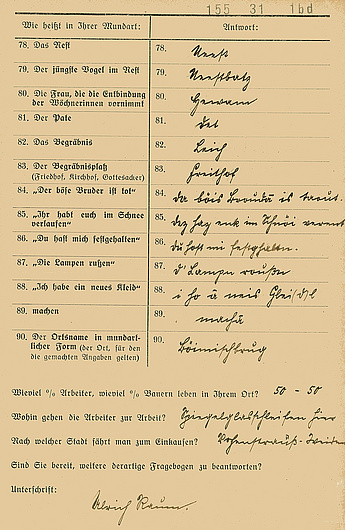 155 31 1bd
Wie heißt in Ihrer Mundart: Antwort:
78. Das Nest 78. Neest
79. Der jüngste Vogel im Nest 79. Neestbatz
80. Die Frau, die die Entbindung der Wöchnerinnen vornimmt 80.
81. Der Pate 81.
82. Das Begräbnis 82. Leich
83. Der Begräbnisplatz (Friedhof, Kirchhof, Gottesacker) 83. Freithof
84. „Der böse Bruder ist tot“ 84. Da böis Brouda is taout.
85. „Ihr habt euch im Schnee verlaufen“ 85. enk im Schnöi
86. „Du hast mich festgehalten“ 86. du host mi festghaltn.
87. „Die Lampen rußen“ 87. d' Lampn roußn
88. „Ich habe ein neues Kleid“ 88. i ho a neis
89. machen 89. macha
90. Der Ortsname in mundartlicher Form (der Ort, für den die gemachten Angaben gelten) 90. Böimischbrug
Wieviel % Arbeiter, wieviel % Bauern leben in Ihrem Ort? 50 – 50
Wohin gehen die Arbeiter zur Arbeit? Spiegelglasschleifen hier
Nach welcher Stadt fährt man zum Einkaufen? Vohenstrauß-Weiden
Sind Sie bereit, weitere derartige Fragebogen zu beantworten?
Unterschrift:
Ulrich